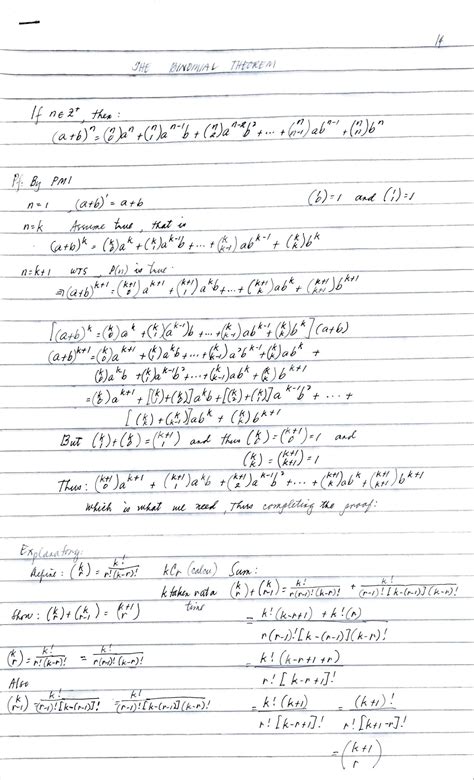 14
THE BINOMIAL THEOREM
If n ∈ Z⁺, then:
(a+b)ⁿ = (n 0)aⁿ + (n 1)aⁿ⁻¹b + (n 2)aⁿ⁻²b² + ... + (n n-1)abⁿ⁻¹ + (n n)bⁿ
Pf: By PMI
n=1 (a+b)¹ = a+b (1 0)=1 and (1 1)=1
n=k Assume true, that is
(a+b)ᵏ = (k 0)aᵏ + (k 1)aᵏ⁻¹b + ... + (k k-1)abᵏ⁻¹ + (k k)bᵏ
n=k+1 WTS, P(n) is true.
⇒ (a+b)ᵏ⁺¹ = (k+1 0)aᵏ⁺¹ + (k+1 1)aᵏb + ... + (k+1 k)abᵏ + (k+1 k+1)bᵏ⁺¹
[(a+b)ᵏ = (k 0)aᵏ + (k 1)(aᵏ⁻¹)b + ... + (k k-1)abᵏ⁻¹ + (k k)bᵏ](a+b)
(a+b)ᵏ⁺¹ = (k 0)aᵏ⁺¹ + (k 1)aᵏb + ... + (k k-1)a²bᵏ⁻¹ + (k k)abᵏ +
(k 0)aᵏb + (k 1)aᵏ⁻¹b² + ... + (k k-1)abᵏ + (k k)bᵏ⁺¹
= (k 0)aᵏ⁺¹ + [(k 1)+(k 0)]aᵏb + [(k 2)+(k 1)]aᵏ⁻¹b² + ... +
[(k k)+(k k-1)]abᵏ + (k k)bᵏ⁺¹
But (k 1)+(k 0) = (k+1 1) and thus (k 0)=(k+1 0)=1 and
(k k) = (k+1 k+1) = 1
Thus: (k+1 0)aᵏ⁺¹ + (k+1 1)aᵏb + (k+1 2)aᵏ⁻¹b² + ... + (k+1 k)abᵏ + (k+1 k+1)bᵏ⁺¹
which is what we need, Thus completing the proof.
Explanatory:
Define: (k r) = k!/r!(k-r)! kCr (calcu) Sum:
k taken r at a time (k r)+(k r-1) = k!/r(r-1)!(k-r)! + k!/(r-1)![k-(r-1)](k-r)!
Show: (k r)+(k r-1) = (k+1 r) = k!(k-r+1) + k!(r) / r(r-1)![k-(r-1)](k-r)!
(k r) = k!/r!(k-r)! = k!/r(r-1)!(k-r)! = k!(k-r+1+r) / r![k-r+1]!
Also
(k r-1) k!/(r-1)![k-(r-1)]! k!/(r-1)![k-(r-1)](k-r)! = k!(k+1)/r![k-r+1]! = (k+1)!/r![k+1-r]!
= (k+1 r)